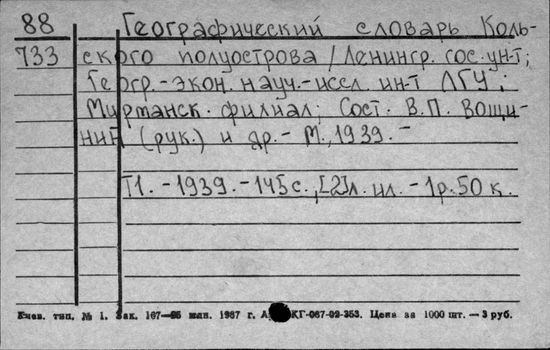 88 Географический словарь Коль-
733 ского полуострова / Ленингр. гос. ун-т;
Геогр.-экон. науч.-иссл. ин-т ЛГУ;
Мурманск. филиал; Сост. В.П. Вощи-
нин (рук.) и др. - М., 1939. -
Т1. - 1939. - 145 с., [2]л. ил. - 1р. 50 к.
Киев. тип. № 1. Зак. 167— млн. 1987 г. КГ-067-02-353. Цена за 1000 шт. — 3 руб.